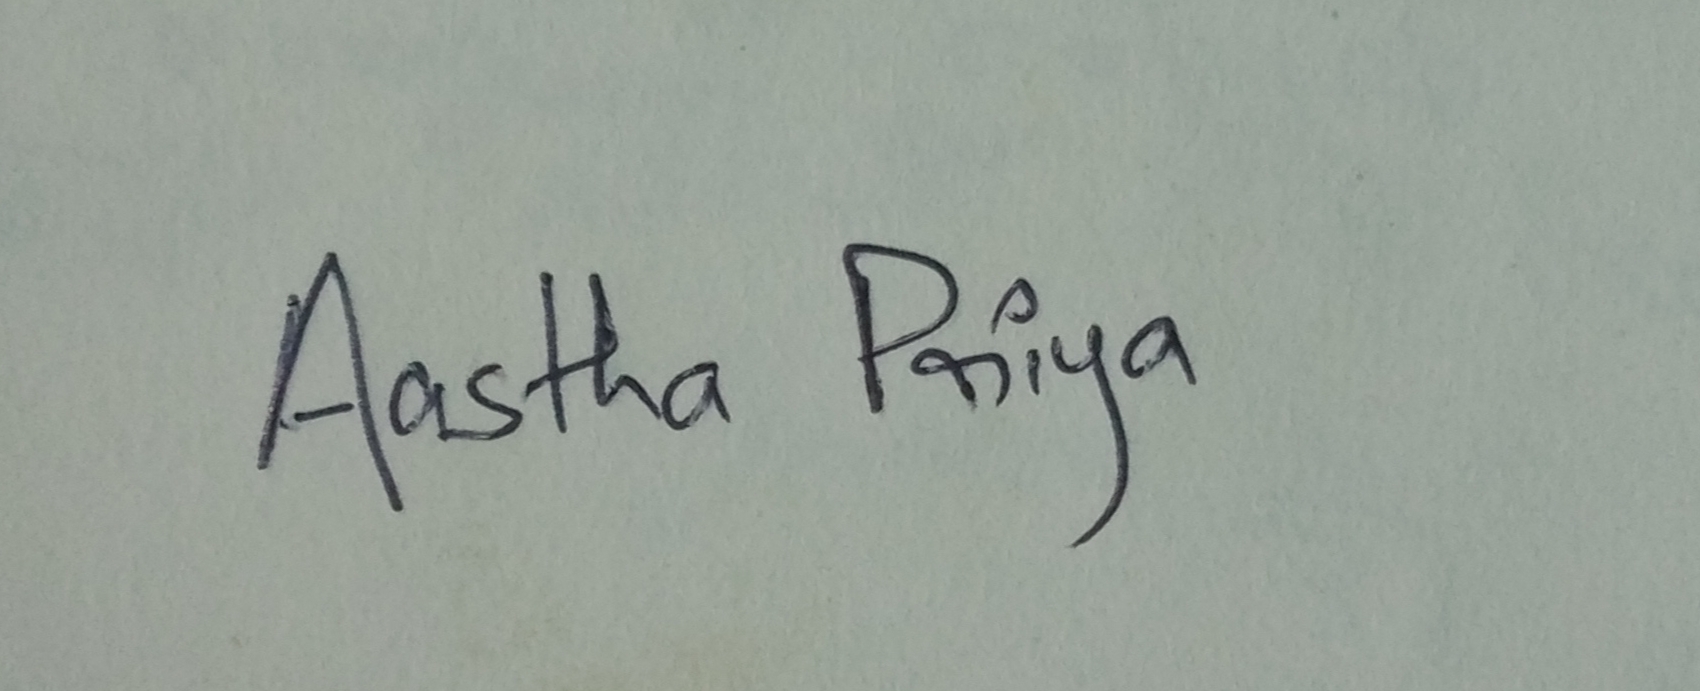 Aastha Priya